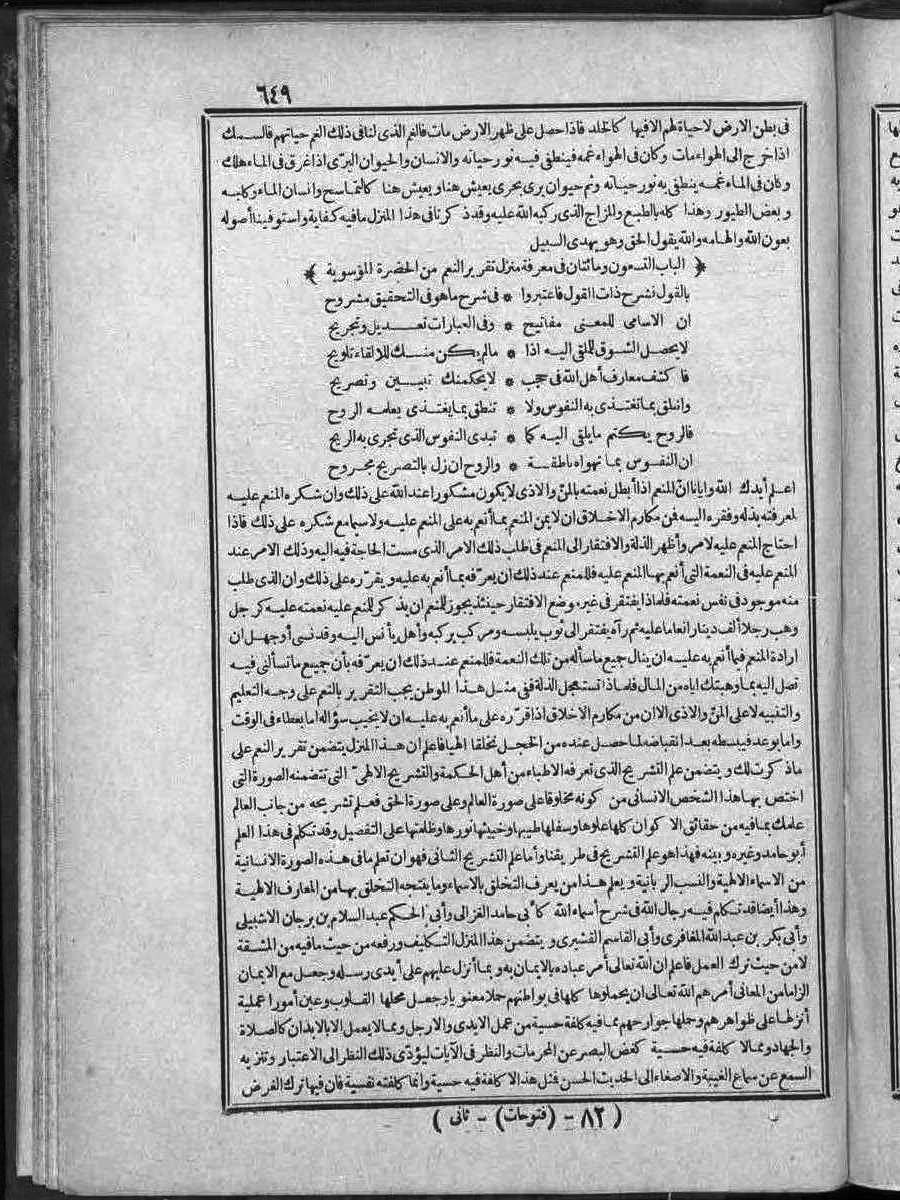 ٦٤٩
فى بطن الارض لاحياة لهم الافيها كالخلد فاذا حصل على ظهر الارض مات فالغم الذى لنا فى ذلك الغم حياتهم فالسمك
اذا خرج الى الهواء مات وكان فى الهواء غمه فينطفى فيه نور حياته والانسان والحيوان البرّى اذا غرق فى الماء هلك
وكان فى الماء غمه ينطفى به نور حياته وثم حيوان برى بحرى يعيش هنا ويعيش هنا كالتمساح وانسان الماء وكلبه
وبعض الطيور وهذا كله بالطبع والمزاج الذى ركبه الله عليه وقد ذكرنا فى هذا المنزل مافيه كفاية واستوفينا أصوله
بعون الله والهامه والله يقول الحق وهو يهدى السبيل
﴿ الباب التسعون ومائتان فى معرفة منزل تقرير النعم من الحضرة الموسوية ﴾
بالقول نشرح ذات القول فاعتبروا * فى شرح ماهو فى التحقيق مشروح
ان الاسامى للمعنى مفاتيح * وفى العبارات تعديل وتجريح
لا يحصل الشوق للملقى اليه اذا * مالم يكن منك للالقاء تلويح
فاكشف معارف أهل الله فى حجب * لا يحكمنك تبيين وتصريح
وانطق بما تغتذى به النفوس ولا * تنطق بما يغتذى بعلمه الروح
فالروح يكتم مايلقى اليه كما * تبدى النفوس الذى تجرى به الريح
ان النفوس بما تهواه ناطقة * والروح ان زل بالتصريح مجروح
اعلم أيدك الله وايانا انّ المنعم اذا أبطل نعمته بالمنّ والاذى لا يكون مشكورا عند الله على ذلك وان شكره المنعم عليه
لمعرفته بذله وفقره اليه فمن مكارم الاخلاق ان لا يمن المنعم بما أنعم به على المنعم عليه ولا سيما مع شكره على ذلك فاذا
احتاج المنعم عليه لامر وأظهر الذلة والافتقار الى المنعم فى طلب ذلك الامر الذى مست الحاجة فيه اليه وذلك الامر عند
المنعم عليه فى النعمة التى أنعم بها المنعم عليه فللمنعم عند ذلك ان يعرّفه بما أنعم به عليه ويقرّره على ذلك وان الذى طلب
منه موجود فى نفس نعمته فلماذا يفتقر فى غير وضع الافتقار حينئذ يجوز للمنعم ان يذكر للمنعم عليه نعمته عليه كرجل
وهب رجلا ألف دينار انعاما عليه ثم رآه يفتقر الى ثوب يلبسه ومركب يركبه وأهل يأنس اليه وقد نسى أوجهل ان
ارادة المنعم فيما أنعم به عليه ان ينال جميع ماسأله من تلك النعمة فللمنعم عند ذلك ان يعرّفه بأن جميع ما تسألنى فيه
تصل اليه بما وهبتك اياه من المال فلماذا تستعجل الذلة ففى مثل هذا الموطن يجب التقرير بالنعم على وجه التعليم
والتنبيه لا على المنّ والاذى الا ان من مكارم الاخلاق اذا قرّره على ما أنعم به عليه ان لا يخيب سؤاله اما بعطاء فى الوقت
واما بوعد فيبسطه بعد انقباضه لما حصل عنده من الخجل تخلقا الهيا فاعلم ان هذا المنزل يتضمن تقرير النعم على
ماذكرت لك ويتضمن علم التشريح الذى تعرفه الاطباء من أهل الحكمة والتشريح الالهىّ التى تتضمنه الصورة التى
اختص بها هذا الشخص الانسانى من كونه مخلوقا على صورة العالم وعلى صورة الحق فعلم تشريحه من جانب العالم
علمك بما فيه من حقائق الاكوان كلها علوها وسفلها طيبها وخبيثها نورها وظلمتها على التفصيل وقد تكلم فى هذا العلم
أبو حامد وغيره وبينه فهذا هو علم التشريح فى طريقنا وأما علم التشريح الثانى فهو ان تعلم ما فى هذه الصورة الانسانية
من الاسماء الالهية والنسب الربانية ويعلم هذا من يعرف التخلق بالاسماء وما ينتجه التخلق بها من المعارف الالهية
وهذا أيضا قد تكلم فيه رجال الله فى شرح أسماء الله كأبى حامد الغزالى وأبى الحكم عبد السلام بن برجان الاشبيلى
وأبى بكر بن عبد الله المغافرى وأبى القاسم القشيرى ويتضمن هذا المنزل التكليف ورفعه من حيث مافيه من المشقة
لا من حيث ترك العمل فاعلم ان الله تعالى أمر عباده بالايمان به وبما أنزل عليهم على أيدى رسله وجعل مع الايمان
الزاما من المعانى أمرهم الله تعالى ان يحملوها كلها فى بواطنهم حملا معنويا وجعل محلها القلوب وعين أمورا عملية
أنزلها على ظواهرهم وحملها جوارحهم بما فيه كلفة حسية من عمل الايدى والارجل وبما لا يعمل الا بالابدان كالصلاة
والجهاد وبما لا كلفة فيه حسية كغض البصر عن المحرمات والنظر فى الآيات ليؤدّى ذلك النظر الى الاعتبار وتنزيه
السمع عن سماع الغيبة والاصغاء الى الحديث الحسن فمثل هذا لا كلفة فيه حسية وانما كلفته نفسية فان فيها ترك الغرض
( ٨٢ - (فتوحات) - ثانى )